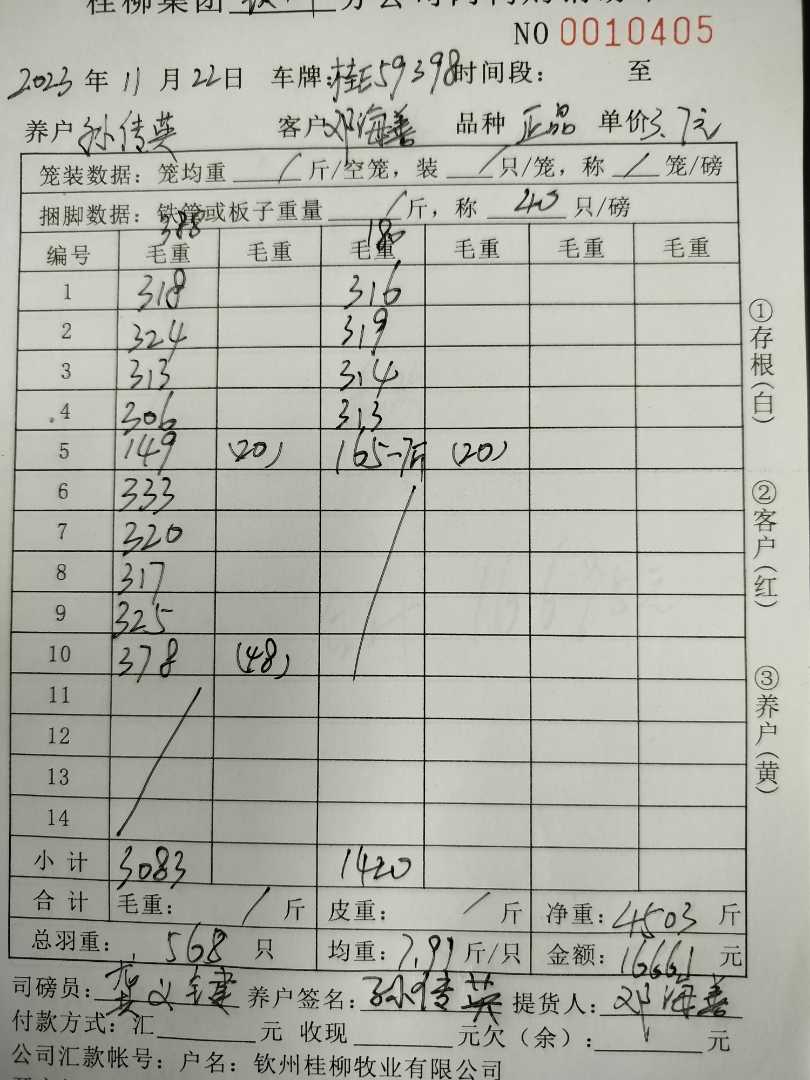 桂柳集团 分公司
NO 0010405
2023 年 11 月 22 日 车牌：桂E59398 时间段： 至
养户 孙传英 客户 邓海善 品种 正品 单价 3.7元
笼装数据：笼均重 / 斤/空笼，装 / 只/笼，称 / 笼/磅
捆脚数据：铁笼或板子重量 / 斤，称 40 只/磅
388 180
编号 毛重 毛重 毛重 毛重 毛重 毛重
1 318 316
2 324 319
3 313 314
4 306 313
5 149 (20) 165 (20)
6 333
7 320
8 317
9 325
10 378 (48)
11
12
13
14
小计 3083 1420
合计 毛重： / 斤 皮重： / 斤 净重：4503 斤
总羽重：568 只 均重：7.91 斤/只 金额：16661 元
司磅员： 养户签名：孙传英 提货人：邓海善
付款方式：汇 元 收现 元欠（余）： 元
公司汇款帐号：户名：钦州桂柳牧业有限公司
①存根（白）
②客户（红）
③养户（黄）